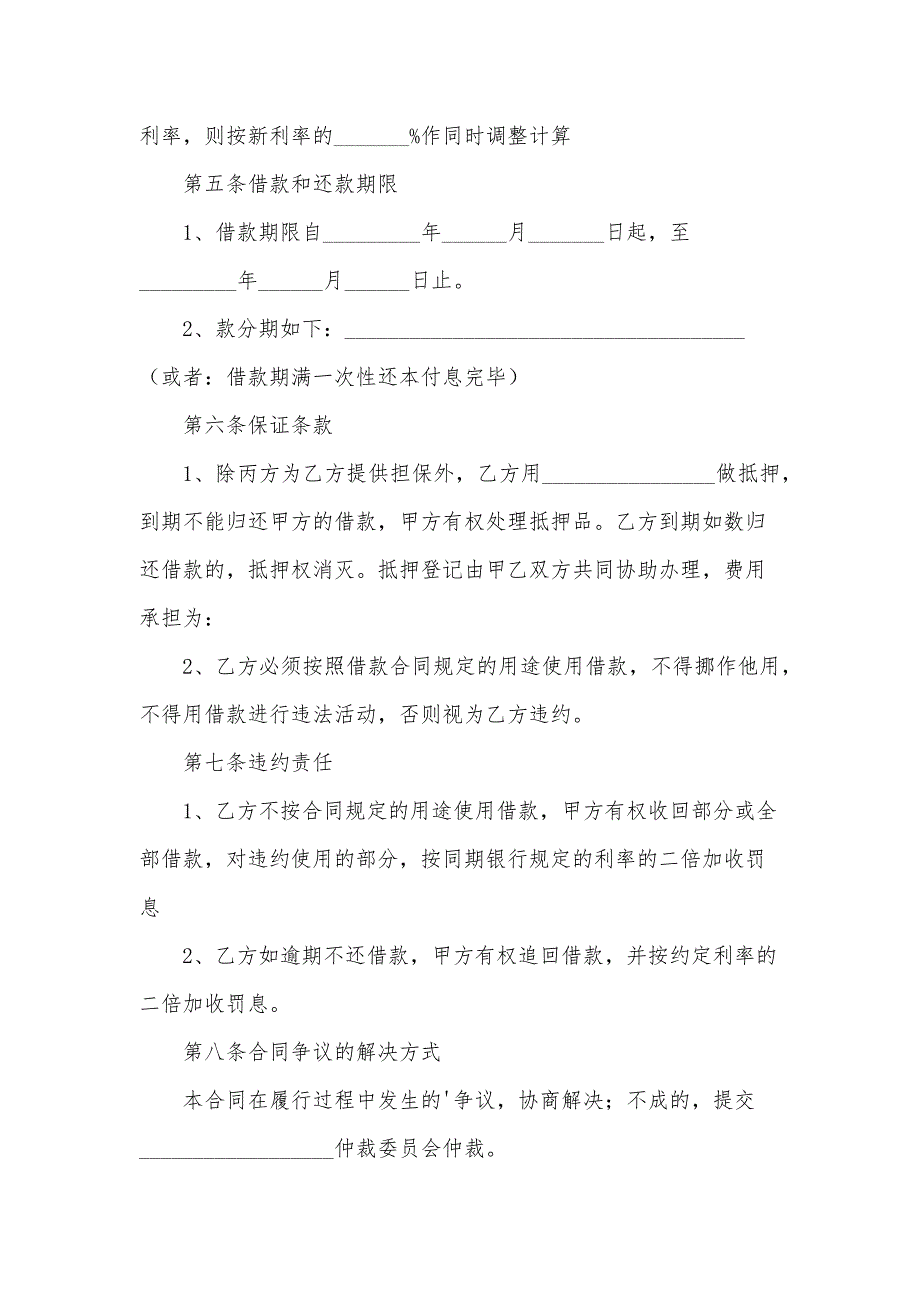 利率，则按新利率的_______%作同时调整计算
第五条借款和还款期限
1、借款期限自_________年______月_______日起，至
_________年______月______日止。
2、款分期如下：_____________________________________
（或者：借款期满一次性还本付息完毕）
第六条保证条款
1、除丙方为乙方提供担保外，乙方用________________做抵押，
到期不能归还甲方的借款，甲方有权处理抵押品。乙方到期如数归
还借款的，抵押权消灭。抵押登记由甲乙双方共同协助办理，费用
承担为：
2、乙方必须按照借款合同规定的用途使用借款，不得挪作他用，
不得用借款进行违法活动，否则视为乙方违约。
第七条违约责任
1、乙方不按合同规定的用途使用借款，甲方有权收回部分或全
部借款，对违约使用的部分，按同期银行规定的利率的二倍加收罚
息
2、乙方如逾期不还借款，甲方有权追回借款，并按约定利率的
二倍加收罚息。
第八条合同争议的解决方式
本合同在履行过程中发生的'争议，协商解决；不成的，提交
__________________仲裁委员会仲裁。